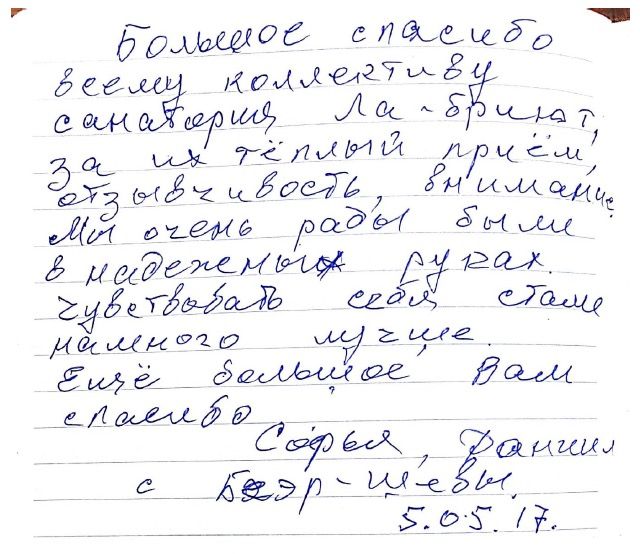 Большое спасибо
всему коллективу
санатория Ла-бриют,
за их тёплый приём,
отзывчивость, внимание.
Мы очень рады были
в надежных руках.
чувствовать себя стали
намного лучше.
Ещё большое Вам
спасибо
Софья, Даниил
с Беэр-Шевы.
5.05.17.